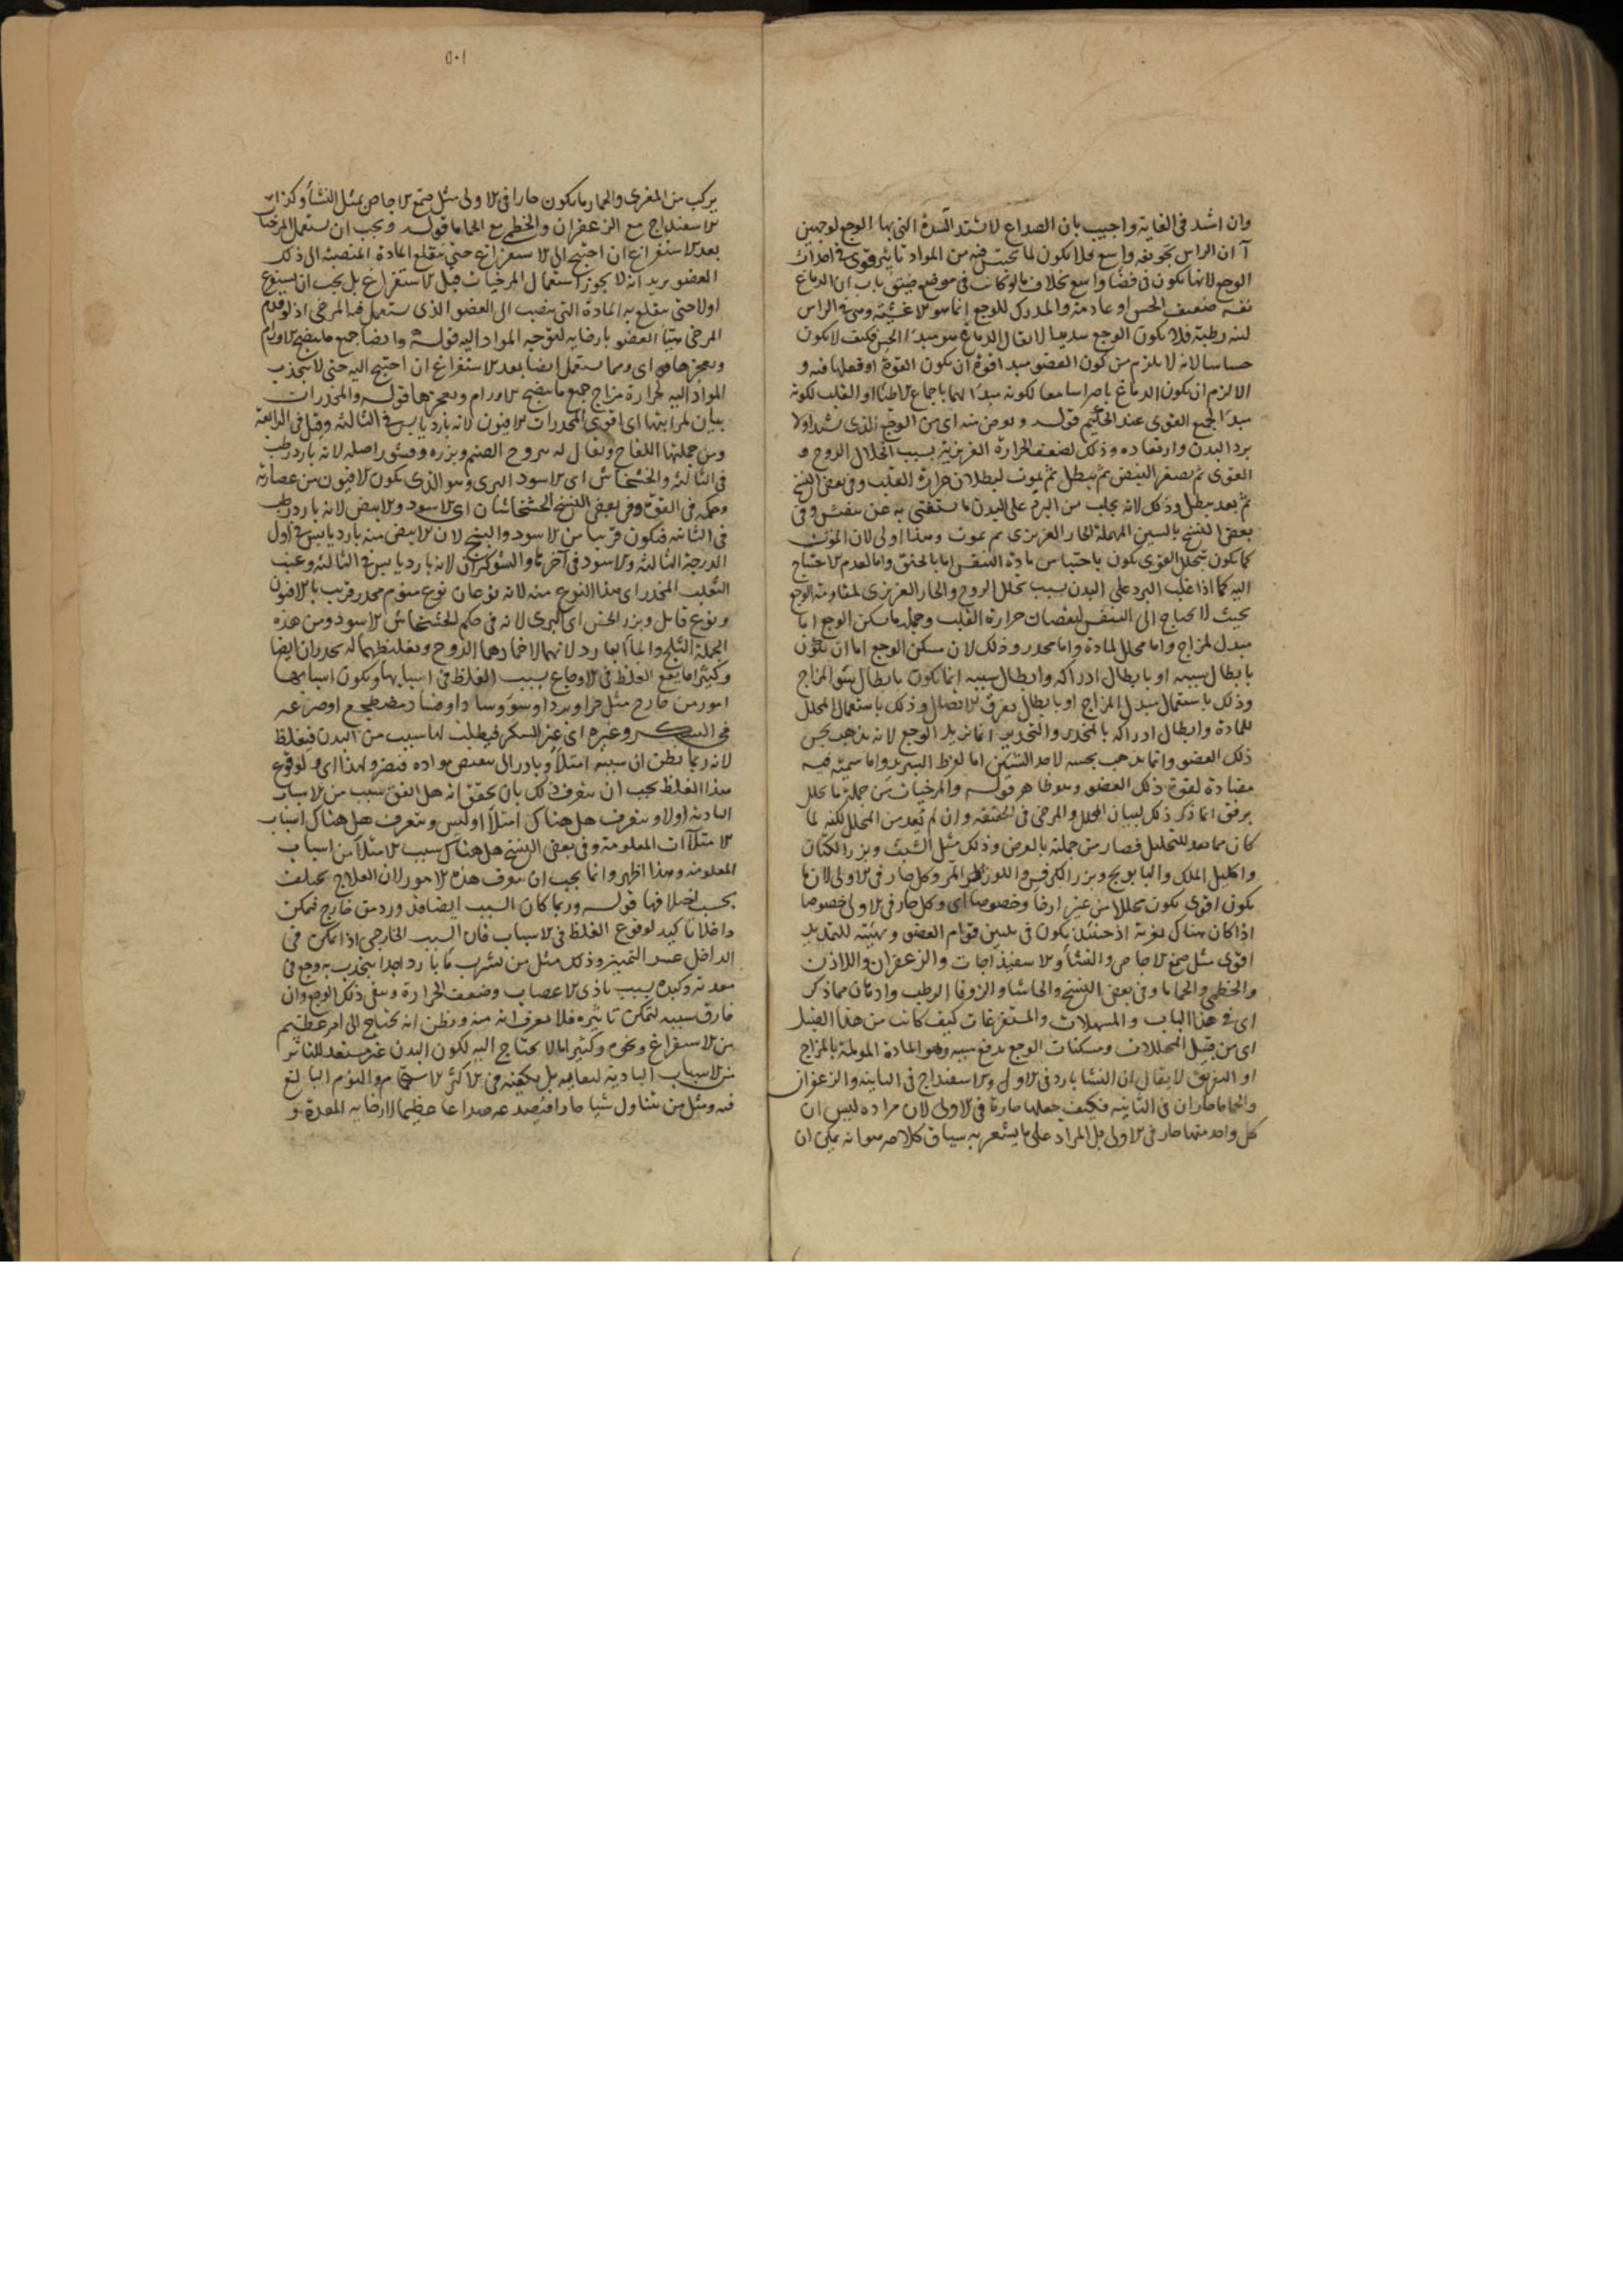 وان اشد فى الغاية واجيب بان الصداع لا شتد الشدة التى بها الوجع لوجهين
آ ان الراس تجويفه واسع فلا يكون لما يحتبس فيه من المواد تاثير قوى فى احداث
الوجع لانها يكون فى فضا واسع بخلاف ما لو كانت فى موضع ضيق ب ان الدماغ
نفسه ضعيف الحس او عادمه والمدرك للوجع انما هو الاغشية وهى فى الراس
لينه رطبة فلا يكون الوجع شديدا لا يقال الدماغ هو مبدا الحس فكيف لا يكون
حساسا لانه لا يلزم من كون العضو مبدا قوة ان يكون القوة او فعلها فيه و
الا لزم ان يكون الدماغ باصرا سامعا لكونه مبدا لهما باجماع الاطبا او القلب لكونه
مبدا لجميع القوى عند الحكيم قوله ويعرض منه اى من الوجع الذى شد اولا
برد البدن وارتعاده وذلك لضعف الحرارة الغريزية بسبب انحلال الروح و
القوى ثم يصغر النبض ثم يبطل ثم يموت لبطلان حرارة القلب وفى بعض النسخ
ثم بعد يبطل وذلك لانه يجلب من البرد على البدن ما يستغنى به عن تنفس وفى
بعض النسخ بالسين المهملة الحار الغريزى ثم يموت وهذا اولى لان الموت
كما يكون بتحلل القوى يكون باحتباس مادة التنفس اما بالخنق واما لعدم الاحتياج
اليه كما اذا غلب البرد على البدن بسبب تحلل الروح والحار الغريزى لمقاومة الوجع
بحيث لا يحتاج الى التنفس لنقصان حرارة القلب وجملة ما يسكن الوجع اما
مبدل لمزاج واما محلل لمادة واما مخدر وذلك لان مسكن الوجع اما ان يكون
بابطال سببه او بابطال ادراكه وابطال سببه انما يكون بابطال سو المزاج
وذلك باستعمال مبدل المزاج او بابطال تفرق الاتصال وذلك باستعمال المحلل
للمادة وابطال ادراكه بالمخدر والتخدير انما يزيل الوجع لانه يذهب بحس
ذلك العضو وانما يذهب بحسه لاحد الشيئين اما لفرط التبريد واما سمية فيه
مضادة لقوة ذلك العضو وهو ظاهر قوله والمرخيات من جملة ما يحلل
برفق انما ذكر ذلك لبيان المحلل والمرخى فى الحقيقة وان لم تعد من المحلل لكنه لما
كان مما يعد للتحليل فصار من جملته بالعرض وذلك مثل الشبث وبزر الكتان
واكليل الملك والبابونج وبزر الكرفس واللوز المر وكل حار فى الاولى لان ما
يكون اقوى يكون محللا من غير ارخا وخصوصا اى وكل حار فى الاولى خصوصا
اذا كان هناك تغرية اذ حينئذ يكون فى تليين قوام العضو وتهيئته للتمديد
اقوى مثل صمغ الاجاص والنشا والاسفيذاجات والزعفران واللاذن
والخطمى والحماما وفى بعض النسخ والحاشا والزوفا الرطب وادهان مما ذكر
اى فى هذا الباب والمسهلات والمستفرغات كيف كانت من هذا القبيل
اى من قبيل المحللات ومسكنات الوجع يدفع سببه وهو المادة المولمة بالمزاج
او التفريق لا يقال ان النشا بارد فى الاولى والاسفيداج فى الثانية والزعفران
والحماما حاران فى الثانية فكيف جعلها حارة فى الاولى لان مراده ليس ان
كل واحد منها حار فى الاولى بل المراد على ما يشعر به سياق كلامه هو انه يمكن ان
٥٠١
يركب من المغرى والحار ما يكون حارا فى الاولى مثل صمغ الاجاص بمثل النشا وكذا
الاسفيداج مع الزعفران والخطمى مع الحماما قوله ويجب ان يستعمل المرخيات
بعد الاستفراغ ان احتيج الى الاستفراغ حتى ينقطع المادة المنصبة الى ذلك
العضو يريد انه لا يجوز استعمال المرخيات قبل الاستفراغ بل يجب ان يستفرغ
اولا حتى ينقطع به المادة التى تنصب الى العضو الذى يستعمل فيه المرخى اذ لو قدم
المرخى تهيأ العضو بارخايه لتوجه المواد اليه قوله وايضا جميع ما ينضج الاورام
ويفجرها اى ومما يستعمل ايضا بعد الاستفراغ ان احتيج اليه حتى لا ينجذب
المواد اليه لحرارة مزاج جميع ما ينضج الاورام ويفجرها قوله والمخدرات
بيان لمراتبها اى اقوى المخدرات الافيون لانه بارد يابس فى الثالثة وقيل فى الرابعة
ومن جملتها اللفاح ويقال له يبروح الصنم وبزره وقشور اصله لانه بارد رطب
فى الثالثة والخشخاش اى الاسود البرى وهو الذى يكون الافيون من عصارته
وحكمه فى القوة وفى بعض النسخ الخشخاشان اى الاسود والابيض لانه بارد رطب
فى الثانية فيكون قريبا من الاسود والبنج لان الابيض منه بارد يابس فى اول
الدرجة الثالثة والاسود فى آخرها والشوكران لانه بارد يابس فى الثالثة وعنب
الثعلب المخدر اى هذا النوع منه لانه نوعان نوع منوم مخدر قريب بالافيون
ونوع قاتل وبزر الخس اى البرى لانه فى حكم الخشخاش الاسود ومن هذه
الجملة الثلج والماء البارد لانهما لاخمادهما الروح وتغليظهما له يخدران ايضا
وكثيرا ما يقع الغلط فى الاوجاع بسبب الغلط فى اسبابها ويكون اسبابها
امور من خارج مثل حر او برد او سوء وساد او فساد مضطجع او صرعه
فى السكر وغيره اى غير السكر فيطلب لها سبب من البدن فيغلط
لانه ربما يظن ان سببه امتلأ وبادر الى تنقيص مواده فيضر ولهذا اى ولوقوع
هذا الغلط يجب ان يتعرف ذلك بان يحقق انه هل اتفق سبب من الاسباب
البادية اولا ويتعرف هل هناك امتلأ او ليس ويتعرف هل هناك اسباب
الامتلآت المعلومة وفى بعض النسخ هل هناك سبب الامتلأ من اسباب
المعلومه وهذا اظهر وانما يجب ان يتعرف هذه الامور لان العلاج يختلف
بحسب اختلافها قوله وربما كان السبب ايضا قد ورد من خارج فتمكن
داخلا تاكيد لوقوع الغلط فى الاسباب فان السبب الخارجى اذا تمكن فى
الداخل عسر التمييز وذلك مثل من يشرب ما باردا جدا فيحدث به وجع فى
معدته وكبده بسبب تاذى الاعصاب وضعف الحرارة وبقى ذلك الوجع وان
فارق سببه لتمكن تاثيره فلا يعرف انه منه ويظن انه يحتاج الى امر عظيم
من الاستفراغ ونحوه وكثيرا ما لا يحتاج اليه لكون البدن غير مستعد للتاثر
من الاسباب البادية لنقايه بل يكفيه فى الاكثر الاستحمام والنوم البالغ
فيه ومثل من يتناول شيا حارا فيصدعه صداعا عظيما لارخايه المعدة و